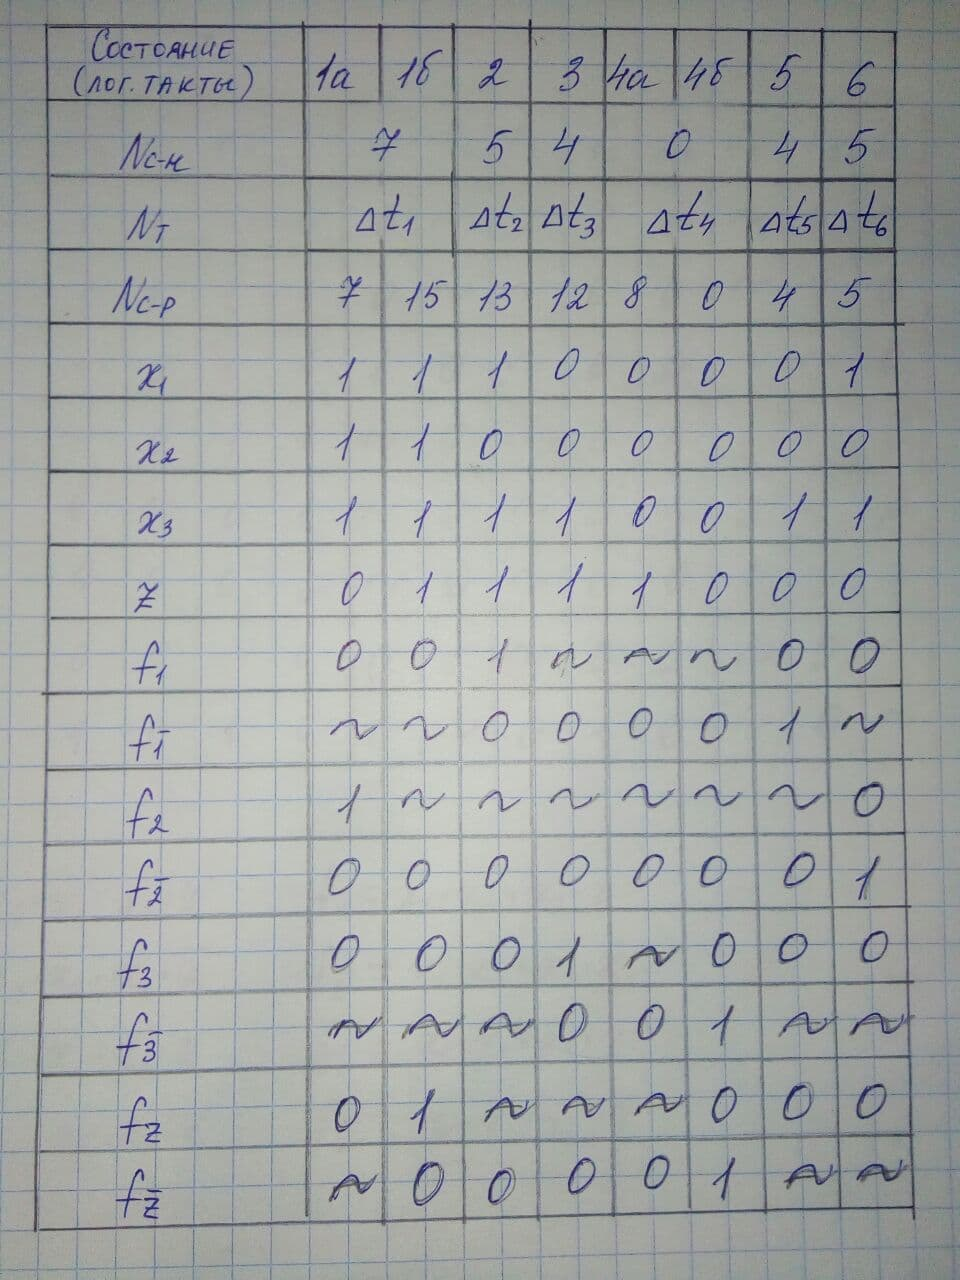 Состояние
(лог. такты) 1а 1б 2 3 4а 4б 5 6
Nс-н 7 5 4 0 4 5
Nт Δt1 Δt2 Δt3 Δt4 Δt5 Δt6
Nс-р 7 15 13 12 8 0 4 5
x1 1 1 1 0 0 0 0 1
x2 1 1 0 0 0 0 0 0
x3 1 1 1 1 0 0 1 1
z 0 1 1 1 1 0 0 0
f1 0 0 1 ~ ~ ~ 0 0
f1̄ ~ ~ 0 0 0 0 1 ~
f2 1 ~ ~ ~ ~ ~ ~ 0
f2̄ 0 0 0 0 0 0 0 1
f3 0 0 0 1 ~ 0 0 0
f3̄ ~ ~ ~ 0 0 1 ~ ~
fz 0 1 ~ ~ ~ 0 0 0
fz̄ ~ 0 0 0 0 1 ~ ~